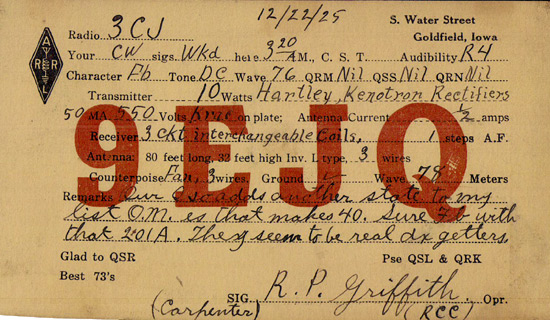 12/22/25
S. Water Street
Goldfield, Iowa
Radio 3CJ
ARRL
Your CW sigs. Wkd here 3 20 AM., C. S. T. Audibility R4
Character Fb Tone DC Wave 76 QRM Nil QSS Nil QRN Nil
Transmitter 10 Watts Hartley, Kenotron Rectifiers
50 MA. 550 Volts on plate; Antenna Current 1/2 amps
Receiver 3 ckt interchangeable Coils, 1 steps A.F.
Antenna: 80 feet long, 32 feet high Inv. L type, 3 wires
Counterpoise Fan, 3 wires. Ground Wave 78 Meters
9EJQ
Remarks Our QSO adds another state to my
list O.M. es that makes 40. Sure F.b with
that 201A. They seem to be real dx getters.
Glad to QSR Pse QSL & QRK
Best 73's
SIG. R. P. Griffith Opr.
(Carpenter) (RCC)